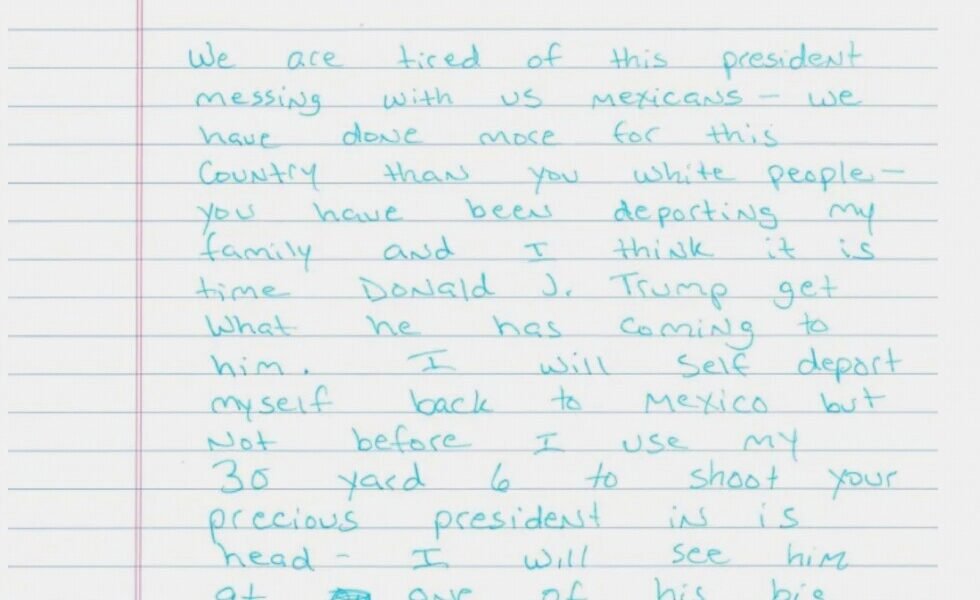 We are tired of this president
messing with us mexicans - we
have done more for this
Country than you white people -
you have been deporting my
family and I think it is
time Donald J. Trump get
What he has coming to
him. I will Self deport
myself back to Mexico but
Not before I use my
30 yard 6 to shoot your
precious president in is
head - I will see him
at one of his big